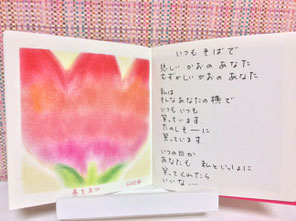 いつも そばで
悲しい かおの あなた
むずかしい かおの あなた
私は
そんなあなたの横で
いつも いつも
笑っています
たのしそーに
笑っています
いつの日か
あなたも 私といっしょに
笑ってくれたら
いいな…